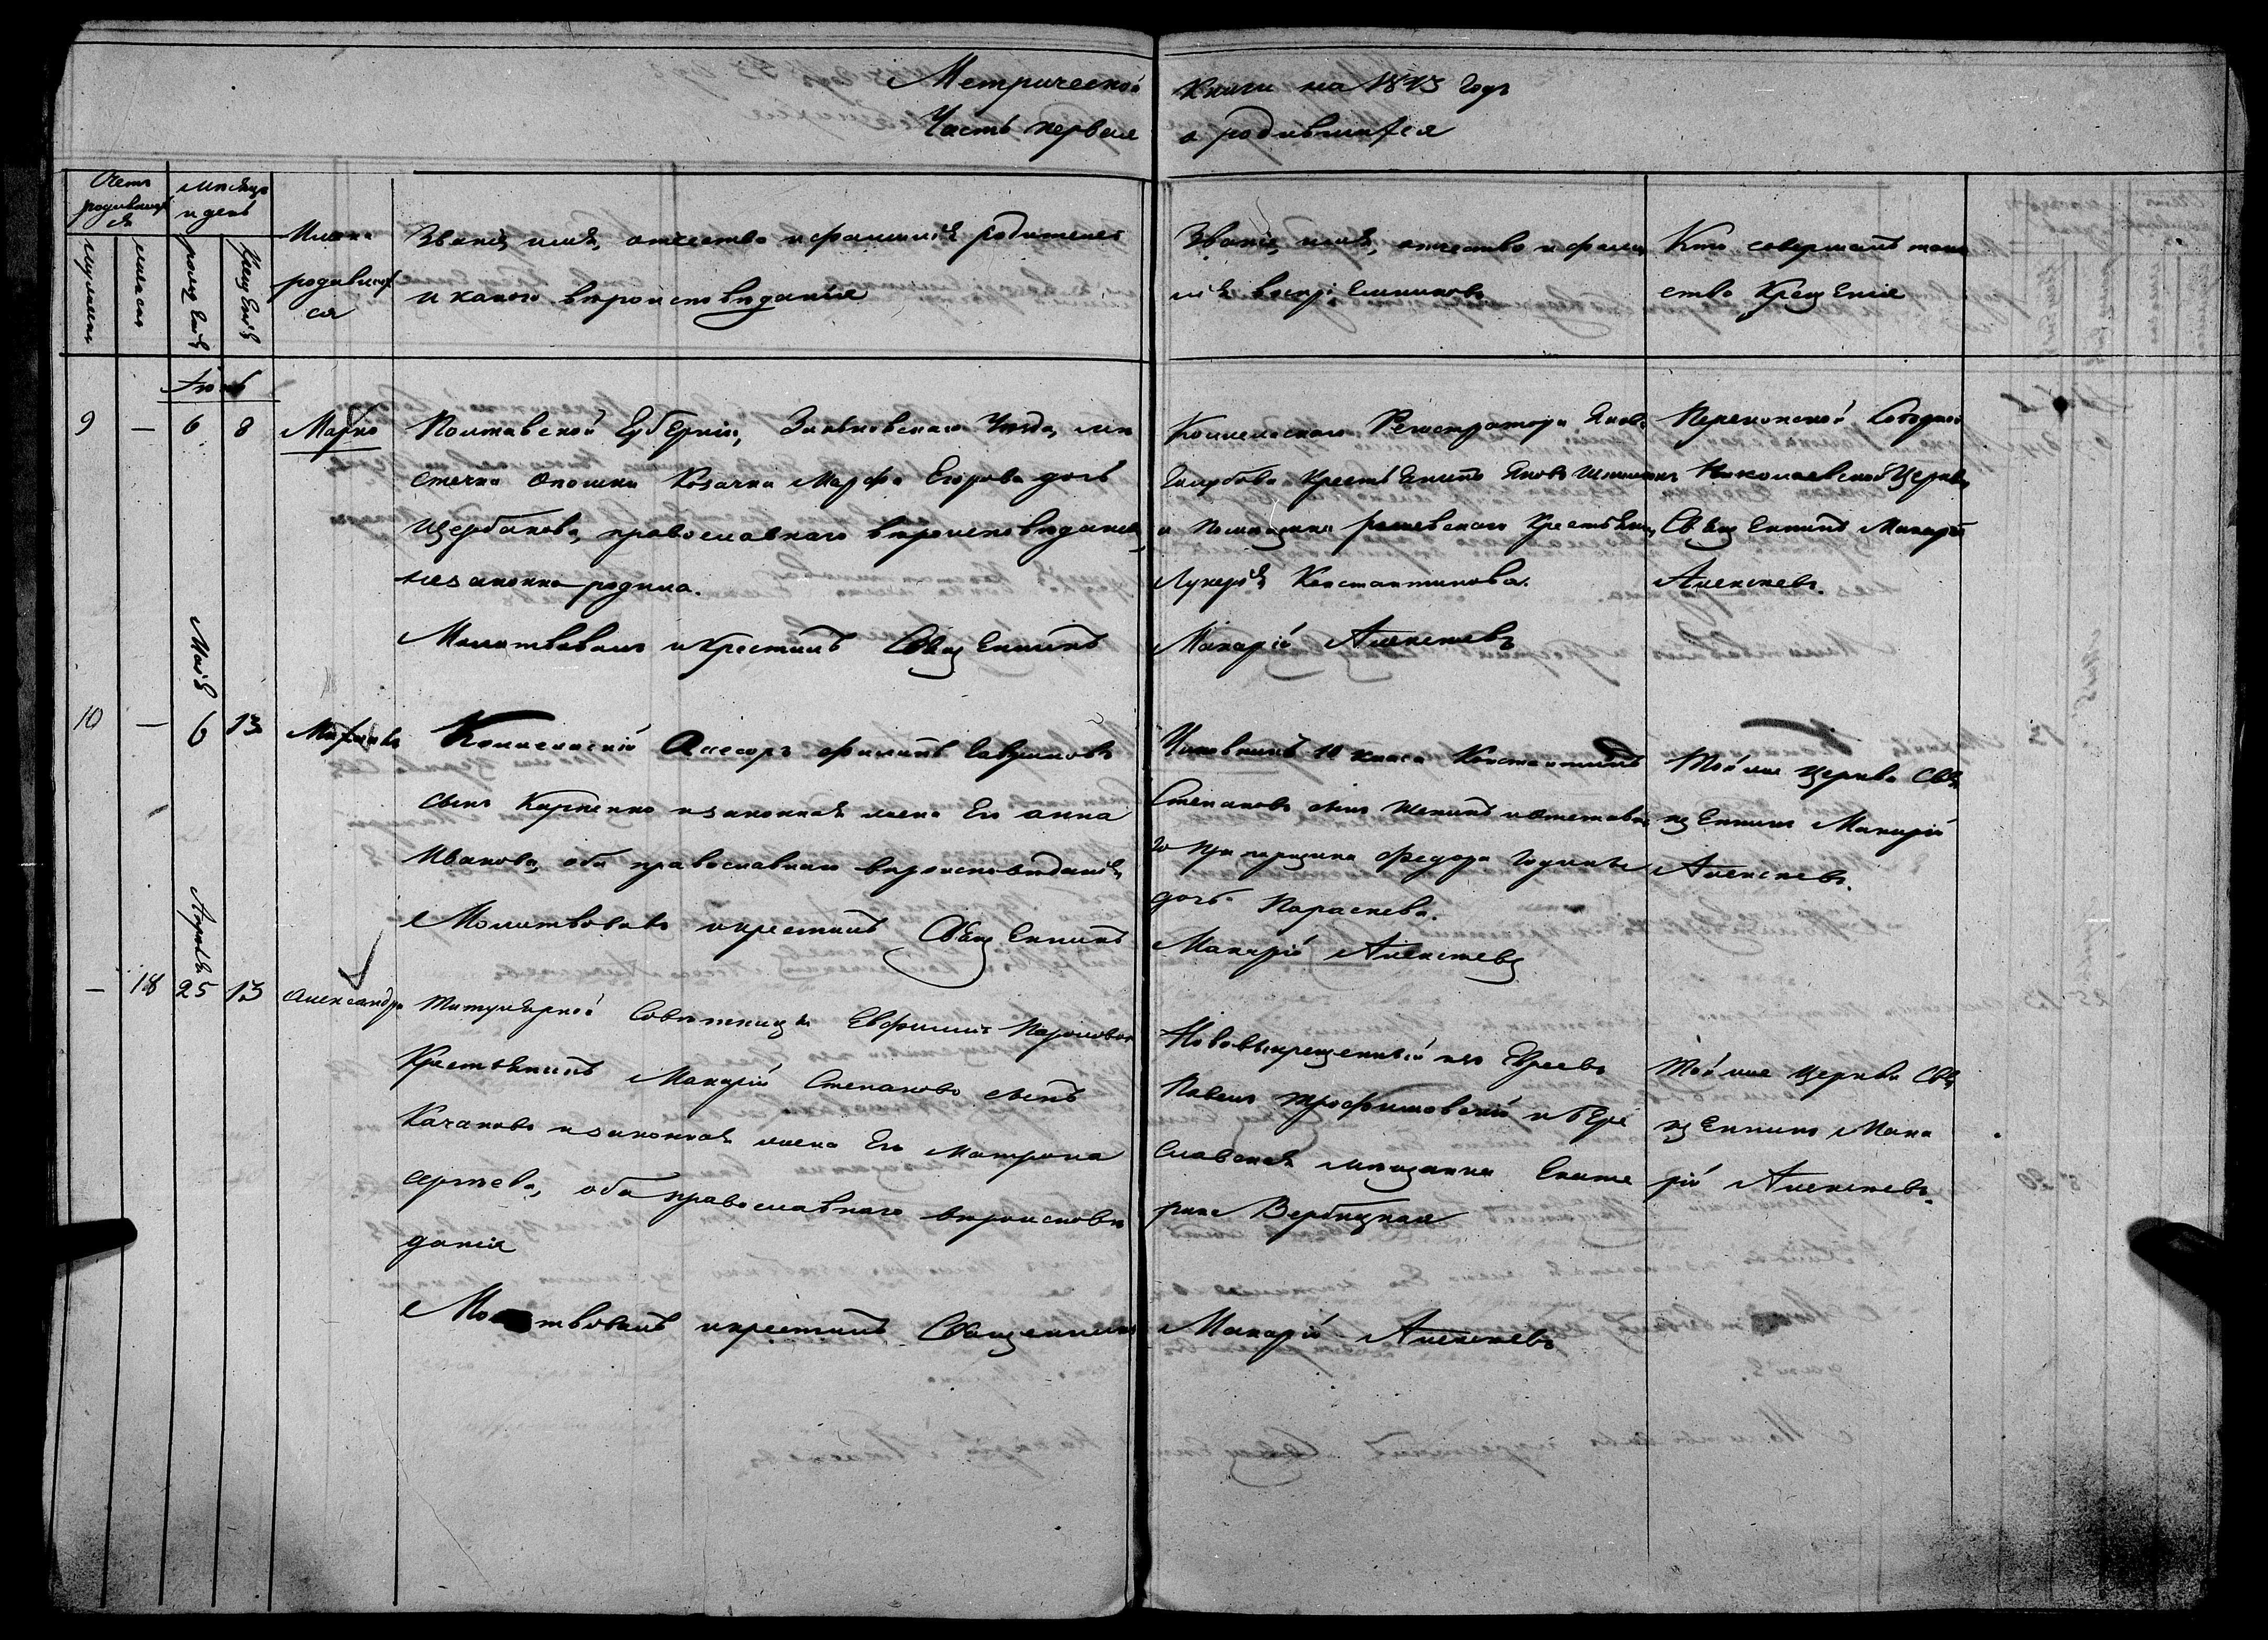 Метрической книги на 1843 годъ
Часть первая о родившихся
Счетъ
родивших
ся
мѣсяцъ
и день
мужеска
женска
рожденія
крещенія
Имена
родивших
ся
Званіе, имя, отчество и фамилія родителей
и какого вѣроисповѣданія
Званіе, имя, отчество и фами
лія воспріемниковъ
Кто совершалъ таин
ство крещенія
Іюнь
9 — 6 8 Марко
Полтавской Губерніи, Зиньковскаго Уѣзда, мѣ
стечка Опошни Козачка Марфа Егорова дочь
Щербакова, православнаго вѣроисповѣданія,
незаконно родила.
Молитвовалъ и крестилъ Священникъ
Коллежскаго Регистратора Якова
крестьянинъ Яковъ
и помѣщика крестьянка
Лукерія Константинова.
Макарій Алексѣевъ
Перекопской Соборной
Николаевской Церкви
Священникъ Макарій
Алексѣевъ.
Маія
10 — 6 13
Коллежскій Асесоръ Филипъ Гавриловъ
сынъ Карпенко и законная жена его Анна
Иванова, оба православнаго вѣроисповѣданія,
Молитвовалъ и крестилъ Священникъ
Чиновникъ 10 класа Константинъ
Степановъ сынъ и отставна
го Федора
дочь Параскева.
Макарій Алексѣевъ
Той же церкви Свя
щенникъ Макарій
Алексѣевъ.
Апрѣля
— 18 25 13 Александра
Титулярной Совѣтницы Евфиміи
Крестьянинъ Макарій Степановъ сынъ
Качановъ и законная жена его Матрона
Сергѣева, оба православнаго вѣроисповѣ
данія
Молитвовалъ и крестилъ Священникъ
Нововыкрещенный изъ Евреевъ
Павелъ Трофимовскій и Бери
славская мѣщанка Екате
рина Вербицкая
Макарій Алексѣевъ
Той же церкви Свя
щенникъ Мака
рій Алексѣевъ.